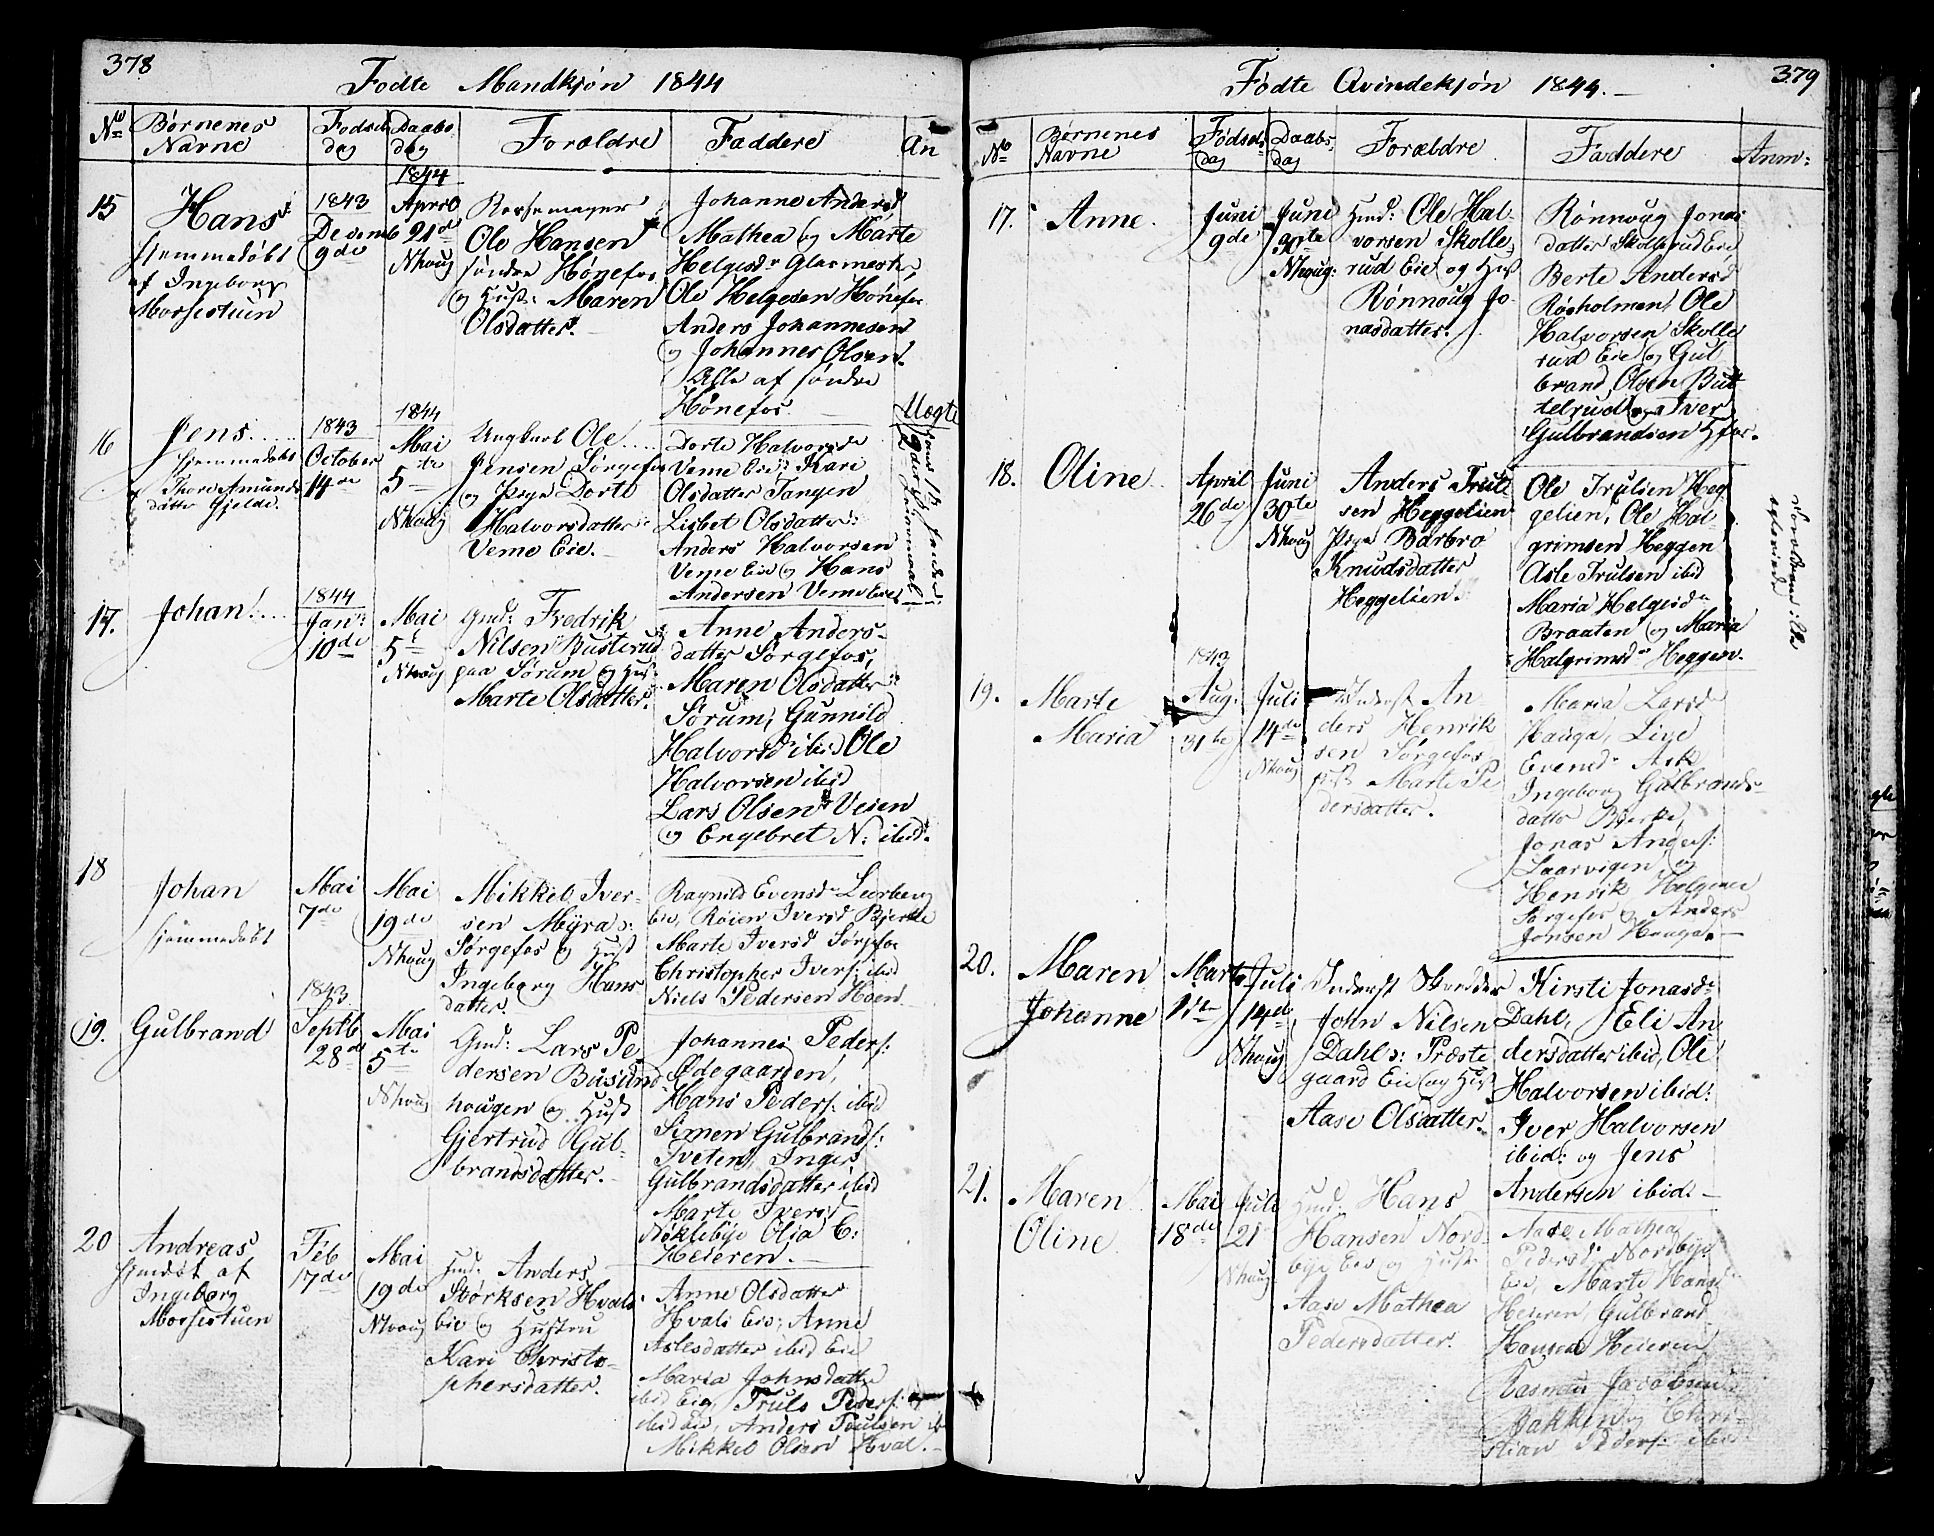 378
Fødte Mandkjøn 1844
No
Børnenes Navne
Fødsels dag
Daabs dag
Forældre
Faddere
An
15
Hans
hjemmedøbt
af Ingeborg
Morsestuen
1843
Decemb
9de
1844
April
21de
Nhoug
Ole Hansen
søndre Hønefos
og Hust: Maren
Olsdatter.
Johanne Andersd
Mathea og Marte
Helgesdr Glarmester
Ole Helgesen Hønefos
Anders Johannesen
og Johannes Olsen
Alle af søndre
Hønefos
16
Jens
hjemmedøbt
af Thore Amunds
datter Gjelde.
1843
October
14de
1844
Mai
5te
Nhoug
Ungkarl Ole
Jensen Sørgefos
og Pige Dorte
Halvorsdatter
Veme Eie.
Dorte Halvorsdr
Veme Eie, Kari
Olsdatter Tangen
Lisbet Olsdatter:
Anders Halvorsen
Veme Eie og Hans
Andersen Veme Eie
Uægte
17.
Johan
1844
Jan:
10de
Mai
5te
Nhoug
Gmd: Fredrik
Nilsen Busterud
paa Sørum og Hust
Marte Olsdatter.
Anne Anders-
datter Sørgefos,
Maren Olsdatter
Sørum, Gunnild
Halvorsdr ibid Ole
Halvorsen ibid
Lars Olsen Veien
og Engebret N: ibid
18
Johan
hjemmedøbt
Mai
7de
Mai
19de
Nhoug
Mikkel Iver-
sen Myra:
Sørgefos og Hust
Ingeborg Hans
datter.
Ragnild Evensdr
Eie, Iversd Bjerke
Marte Iversd Sørgefos
Christopher Ivers: ibid
Niels Pedersen Hoen
19.
Gulbrand
1843
Septb
28de
Mai
5te
Nhoug
Gmd: Lars Pe
dersen Busund
hougen og Hust
Gjertrud Gul-
brandsdatter.
Johannes Peders:
Ødegaarden,
Hans Peders: ibid
Simen Gulbrands:
Tveten, Inger
Gulbrandsdatter ibid
Marte Iversd
Nøklebye Olia C:
Heieren.
20
Andreas
hjmdøbt af
Ingeborg
Morsestuen
Feb
17de
Mai
19de
Nhoug
Hmd: Anders
Størksen Hvals
Eie og Hustru
Kari Christo-
phersdatter.
Anne Olsdatter
Hvals Eie, Anne
Aslesdatter ibid Eie
Maria Johnsdatter
ibid Eie, Truls Peders:
ibid Eie, Anders Trulsen ib
Mikkel Olsen Hval.
379
Fødte Qvindekjøn 1844.
No
Børnenes Navne
Fødsels dag
Daabs dag
Forældre
Faddere
Anm:
17.
Anne
Juni
9de
Juni
30te
Nhoug:
Hmd: Ole Hal-
vorsen Skolle-
rud Eie og Hust
Rønnoug Jo-
nasdatter.
Rønnoug Jonas
datter Skollerud Eie
Berte Andersd
Røsholmen, Ole
Halvorsen Skolle
rud Eie og Gul
brand Olsen But
telrud og Iver
Gulbrandsen Hfos.
18.
Oline
April
26de
Juni
30te
Nhoug
Anders Trul
sen Heggelien
Pige Barbro
Knudsdatter
Heggelien.
Ole Trulsen Heg
gelien, Ole Hal-
grimsen Heggen
Asle Trulsen ibid
Maria Helgesdr
Braaten og Maria
Halgrimsdr Heggen.
Forældrene ikke
egteviede
19.
Marte
Maria
1843
Aug.
31te
Juli
14de
Nhoug
Inderst An-
ders Henrik
sen Sørgefos
Hust Marte Pe
dersdatter.
Maria Larsd
Hauga, Lise
Evensdr Ask
Ingeborg Gulbrands-
datter Bjerke,
Jonas Anders:
Laarvigen og
Henrik Helgesen
Sørgefos og Anders
Jonsen Hauga.
20.
Maren
Johanne
Marts
1te
Juli
14de
Nhoug
Inderst Skrædder
John Nilsen
Dahl: Præste
gaard Eie og Hust
Aase Olsdatter.
Kirsti Jonasdr
Dahl, Eli An
dersdatter ibid, Ole
Halvorsen ibid:
Iver Halvorsen
ibid: og Jens
Andersen ibid:
21.
Maren
Oline
Mai
18de
Juli
21
Nhoug
Hmd: Hans
Hansen Nord
bye Eie og Hust
Aase Mathea
Pedersdatter.
Aase Mathea
Pedersd: Nordbye
Eie, Marte Hansd
Heieren, Gulbrand
Hansen Heieren
Rasmus Jacobsen
og Chri-
stian Peders: ibid